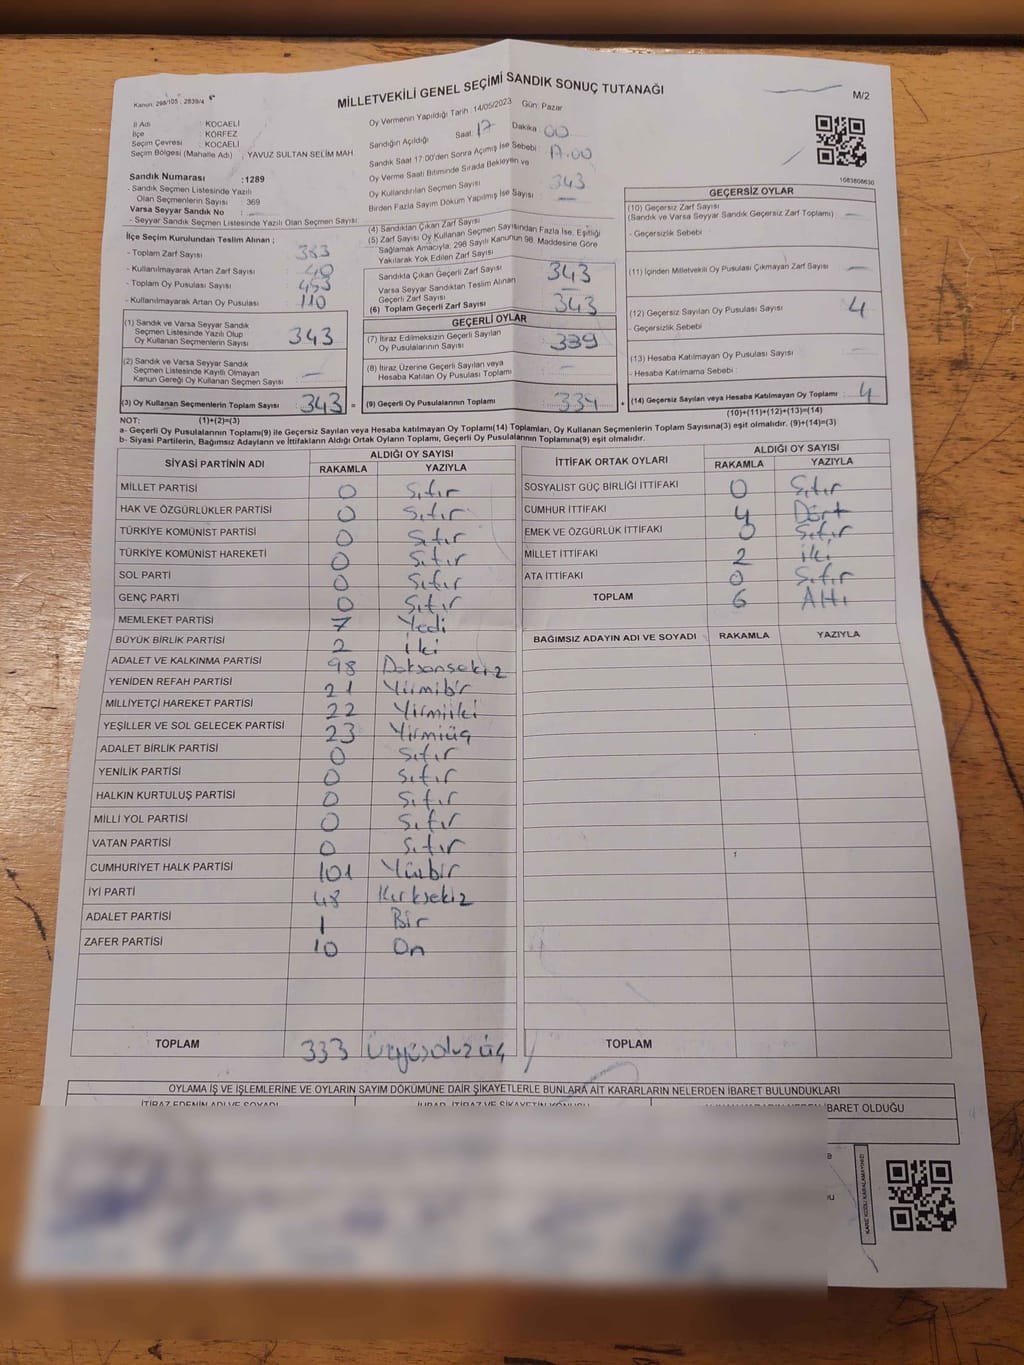 Kanun: 298/105 ; 2839/4
MİLLETVEKİLİ GENEL SEÇİMİ SANDIK SONUÇ TUTANAĞI
M/2
İl Adı : KOCAELİ
İlçe : KÖRFEZ
Seçim Çevresi : KOCAELİ
Seçim Bölgesi (Mahalle Adı) : YAVUZ SULTAN SELİM MAH.
Sandık Numarası : 1289
- Sandık Seçmen Listesinde Yazılı
Olan Seçmenlerin Sayısı : 369
Varsa Seyyar Sandık No
- Seyyar Sandık Seçmen Listesinde Yazılı Olan Seçmen Sayısı:
Oy Vermenin Yapıldığı Tarih : 14/05/2023 Gün: Pazar
Sandığın Açıldığı Saat: 17 Dakika : 00
Sandık Saat 17:00'den Sonra Açımış İse Sebebi : 17.00
Oy Verme Saati Bitiminde Sırada Bekleyen ve
Oy Kullandırılan Seçmen Sayısı 343
Birden Fazla Sayım Döküm Yapılmış İse Sayısı : —
1083808630
İlçe Seçim Kurulundan Teslim Alınan ;
- Toplam Zarf Sayısı : 383
- Kullanılmayarak Artan Zarf Sayısı : 40
- Toplam Oy Pusulası Sayısı : 453
- Kullanılmayarak Artan Oy Pusulası : 110
(1) Sandık ve Varsa Seyyar Sandık
Seçmen Listesinde Yazılı Olup
Oy Kullanan Seçmenlerin Sayısı 343
(2) Sandık ve Varsa Seyyar Sandık
Seçmen Listesinde Kayıtlı Olmayan
Kanun Gereği Oy Kullanan Seçmen Sayısı —
(3) Oy Kullanan Seçmenlerin Toplam Sayısı 343 =
(1)+(2)=(3)
(4) Sandıktan Çıkan Zarf Sayısı
(5) Zarf Sayısı Oy Kullanan Seçmen Sayısından Fazla İse, Eşitliği
Sağlamak Amacıyla; 298 Sayılı Kanunun 98. Maddesine Göre
Yakılarak Yok Edilen Zarf Sayısı
Sandıkta Çıkan Geçerli Zarf Sayısı 343
Varsa Seyyar Sandıktan Teslim Alınan
Geçerli Zarf Sayısı —
(6) Toplam Geçerli Zarf Sayısı 343
GEÇERLİ OYLAR
(7) İtiraz Edilmeksizin Geçerli Sayılan
Oy Pusulalarının Sayısı 339
(8) İtiraz Üzerine Geçerli Sayılan veya
Hesaba Katılan Oy Pusulası Toplamı —
(9) Geçerli Oy Pusulalarının Toplamı 339 +
GEÇERSİZ OYLAR
(10) Geçersiz Zarf Sayısı
(Sandık ve Varsa Seyyar Sandık Geçersiz Zarf Toplamı) : —
- Geçersizlik Sebebi
(11) İçinden Milletvekili Oy Pusulası Çıkmayan Zarf Sayısı : —
(12) Geçersiz Sayılan Oy Pusulası Sayısı : 4
- Geçersizlik Sebebi
(13) Hesaba Katılmayan Oy Pusulası Sayısı :
- Hesaba Katılmama Sebebi :
(14) Geçersiz Sayılan veya Hesaba Katılmayan Oy Toplamı : 4
(10)+(11)+(12)+(13)=(14)
NOT:
a- Geçerli Oy Pusulaları Toplamı(9) ile Geçersiz Sayılan veya Hesaba katılmayan Oy Toplamı(14) Toplamları, Oy Kullanan Seçmenlerin Toplam Sayısına(3) eşit olmalıdır. (9)+(14)=(3)
b- Siyasi Partilerin, Bağımsız Adayların ve İttifakların Aldığı Ortak Oyların Toplamı, Geçerli Oy Pusulalarının Toplamına(9) eşit olmalıdır.
SİYASİ PARTİNİN ADI ALDIĞI OY SAYISI
RAKAMLA YAZIYLA
MİLLET PARTİSİ 0 Sıfır
HAK VE ÖZGÜRLÜKLER PARTİSİ 0 Sıfır
TÜRKİYE KOMÜNİST PARTİSİ 0 Sıfır
TÜRKİYE KOMÜNİST HAREKETİ 0 Sıfır
SOL PARTİ 0 Sıfır
GENÇ PARTİ 0 Sıfır
MEMLEKET PARTİSİ 7 Yedi
BÜYÜK BİRLİK PARTİSİ 2 iki
ADALET VE KALKINMA PARTİSİ 98 Doksansekiz
YENİDEN REFAH PARTİSİ 21 Yirmibir
MİLLİYETÇİ HAREKET PARTİSİ 22 Yirmiiki
YEŞİLLER VE SOL GELECEK PARTİSİ 23 Yirmiüç
ADALET BİRLİK PARTİSİ 0 Sıfır
YENİLİK PARTİSİ 0 Sıfır
HALKIN KURTULUŞ PARTİSİ 0 Sıfır
MİLLİ YOL PARTİSİ 0 Sıfır
VATAN PARTİSİ 0 Sıfır
CUMHURİYET HALK PARTİSİ 101 Yüzbir
İYİ PARTİ 48 Kırksekiz
ADALET PARTİSİ 1 Bir
ZAFER PARTİSİ 10 On
TOPLAM 333 Üçyüzotuzüç
İTTİFAK ORTAK OYLARI ALDIĞI OY SAYISI
RAKAMLA YAZIYLA
SOSYALİST GÜÇ BİRLİĞİ İTTİFAKI 0 Sıfır
CUMHUR İTTİFAKI 4 Dört
EMEK VE ÖZGÜRLÜK İTTİFAKI 0 Sıfır
MİLLET İTTİFAKI 2 iki
ATA İTTİFAKI 0 Sıfır
TOPLAM 6 Altı
BAĞIMSIZ ADAYIN ADI VE SOYADI RAKAMLA YAZIYLA
TOPLAM
OYLAMA İŞ VE İŞLEMLERİNE VE OYLARIN SAYIM DÖKÜMÜNE DAİR ŞİKAYETLERLE BUNLARA AİT KARARLARIN NELERDEN İBARET BULUNDUKLARI
İTİRAZ EDENİN ADI VE SOYADI
İBARET OLDUĞU
KARE KODU KARALAMAYINIZ!